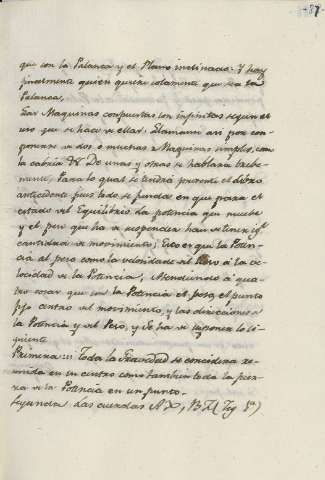 87
que con la Palanca y el Plano inclinado. Y hay
finalmente quien quiere solamente que sea la
Palanca,
Las Maquinas compuestas son infinitas segun el
uso que se hace de ellas. Llamanse asi por com-
ponerse de dos ó muchas Maquinas simples, como
la cabria &. De unas y otras se hablara breve-
mente, Para lo qual se tendrá presente el dibro
antecedente pues todo se funda en que para el
estado del Equilibrio la potencia que muebe
y el peso que ha de suspender han de tener igl
cantidad de movimiento; Esto es que la Poten-
cia al peso como la velocidad del Peso á la ve-
locidad de la Potencia; Atendiendo á qua-
tro cosas que son la Potencia el peso, el punto
fijo centro del movimiento, y las direcciones de
la Potencia y del Peso, y se ha de suponer lo si-
guiente
Primera: Toda la Gravedad se considera re-
unida en su centro como tambien toda la fuer-
za de la Potencia en un punto.
Segunda Las cuerdas AX, B (Fig 1ª)